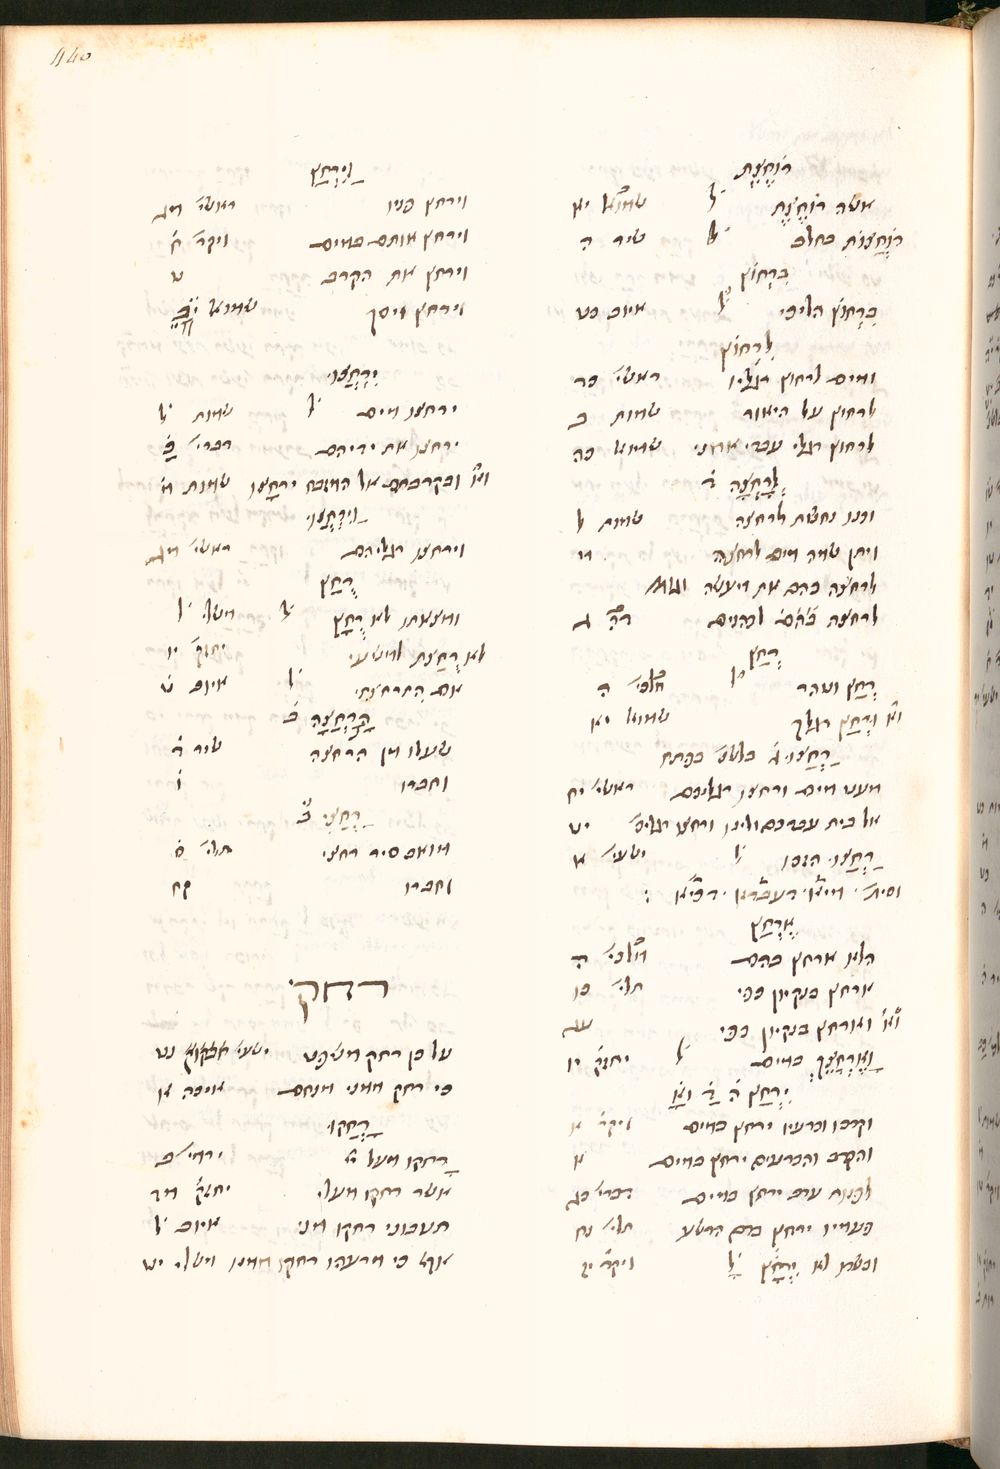 440
רוֹחֶצֶת
אשה רוֹחֶצֶת ל שמוא יא
רוֹחֲצוֹת בחלב ל שיר ה
בִּרְחוֹץ
בִּרְחוֹץ הליכי איוב כט
לִרְחוֹץ
ומים לרחוץ רגליו ראשי׳ כד
לרחוץ על היאור שמות ב
לרחוץ רגלי עבדי אדוני שמוא כה
לְרָחְצָה ד
וכנו נחשת לרחצה שמות ל
ויתן שמה מים לרחצה מ
לרחצה בהם את מעשה
לרחצה בָּהֶם לכהנים דה ד
רְחַץ
רְחַץ וטהר מלכי׳ ה
וא וּרְחַץ רגליך שמוא יא
רַחֲצוּ ג בלש׳ בפתח
מעט מים ורחצו רגליכם ראשי׳ יח
אל בית עבדכם ולינו ורחצו רגליכ׳ יט
רַחֲצוּ הזכו ל ישעי׳ א
אֶרְחַץ
הלא ארחץ בהם מלכי׳ ה
ארחץ בנקיון כפי תלי׳ כו
וא וארחץ בנקיון כפי עג
וָאֶרְחָצֵךְ במים ל יחזק׳ יו
יִרְחַץ ה
וקרבו וכרעיו ירחץ במים ויקר׳ א
והקרב והכרעים ירחץ במים א
לפנות ערב ירחץ במים דברי׳ כג
פעמיו ירחץ בדם הרשע תלי׳ נח
ובשרו לא יִרְחָץ ל ויקר׳ יז
וַיִּרְחַץ
וירחץ פניו ראשי׳ מג
וירחץ אותם במים ויקר׳ ח
וירחץ את הקרב ט
וירחץ ויסך שמוא יב
יִרְחֲצוּ
ירחצו מים ל שמות ל
ירחצו את ידיהם דברי׳ כא
וא ובקרבתם אל המזבח ירחצו שמות מ
וַיִּרְחֲצוּ
וירחצו רגליהם ראשי׳ מג
רֻחַץ
ומצאתו לא רֻחָץ ל משלי ל
לא רֻחַצְתְּ למשעי יחזק׳ יו
אם הִתְרָחַצְתִּי ל איוב ט
הָרַחְצָה ב
שעלו מן הרחצה שיר ד
וחברו ו
רַחְצִי ב
מואב סיר רחצי תלי׳ ס
וחברו קח
רחק
על כן רחק משפט ישעי׳ נט
כי רחק ממני מנחם איכה א
רָחֲקוּ
רָחֲקוּ מעלי ירמי׳ ב
אשר רחקו מעלי יחזק׳ מד
תעבוני רחקו מני איוב ל
אף כי מרעהו רחקו ממנו משלי יט